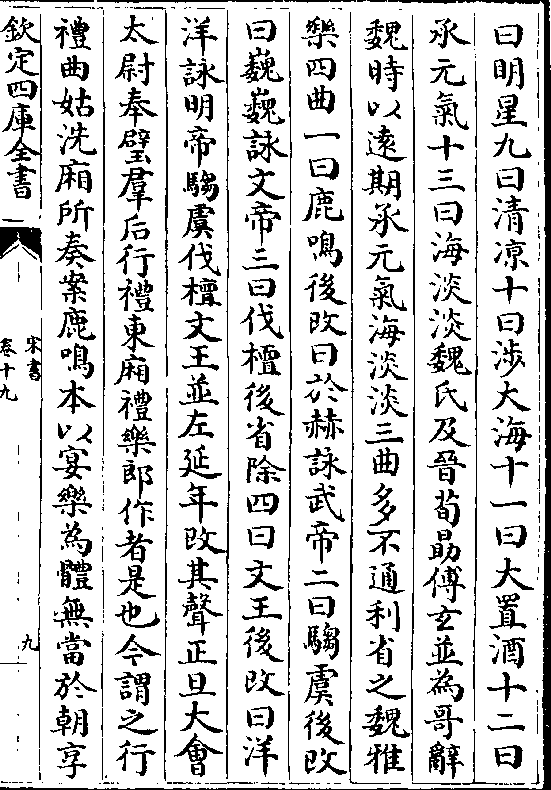 曰明星九曰清凉十曰涉大海十一曰大置酒十二曰
承元氣十三曰海淡淡魏氏及晉荀勗傅玄並為哥辭
魏時以逺期承元氣海淡淡三曲多不通利省之魏雅
樂四曲一曰鹿鳴後改曰於赫詠武帝二曰騶虞後改
曰巍巍詠文帝三曰伐檀後省除四曰文王後改曰洋
洋詠明帝騶虞伐檀文王並左延年改其聲正旦大會
太尉奉璧羣后行禮東廂禮樂郎作者是也今謂之行
禮曲姑洗廂所奏案鹿鳴本以宴樂為體無當於朝享
欽定四庫全書
宋書
卷十九
九